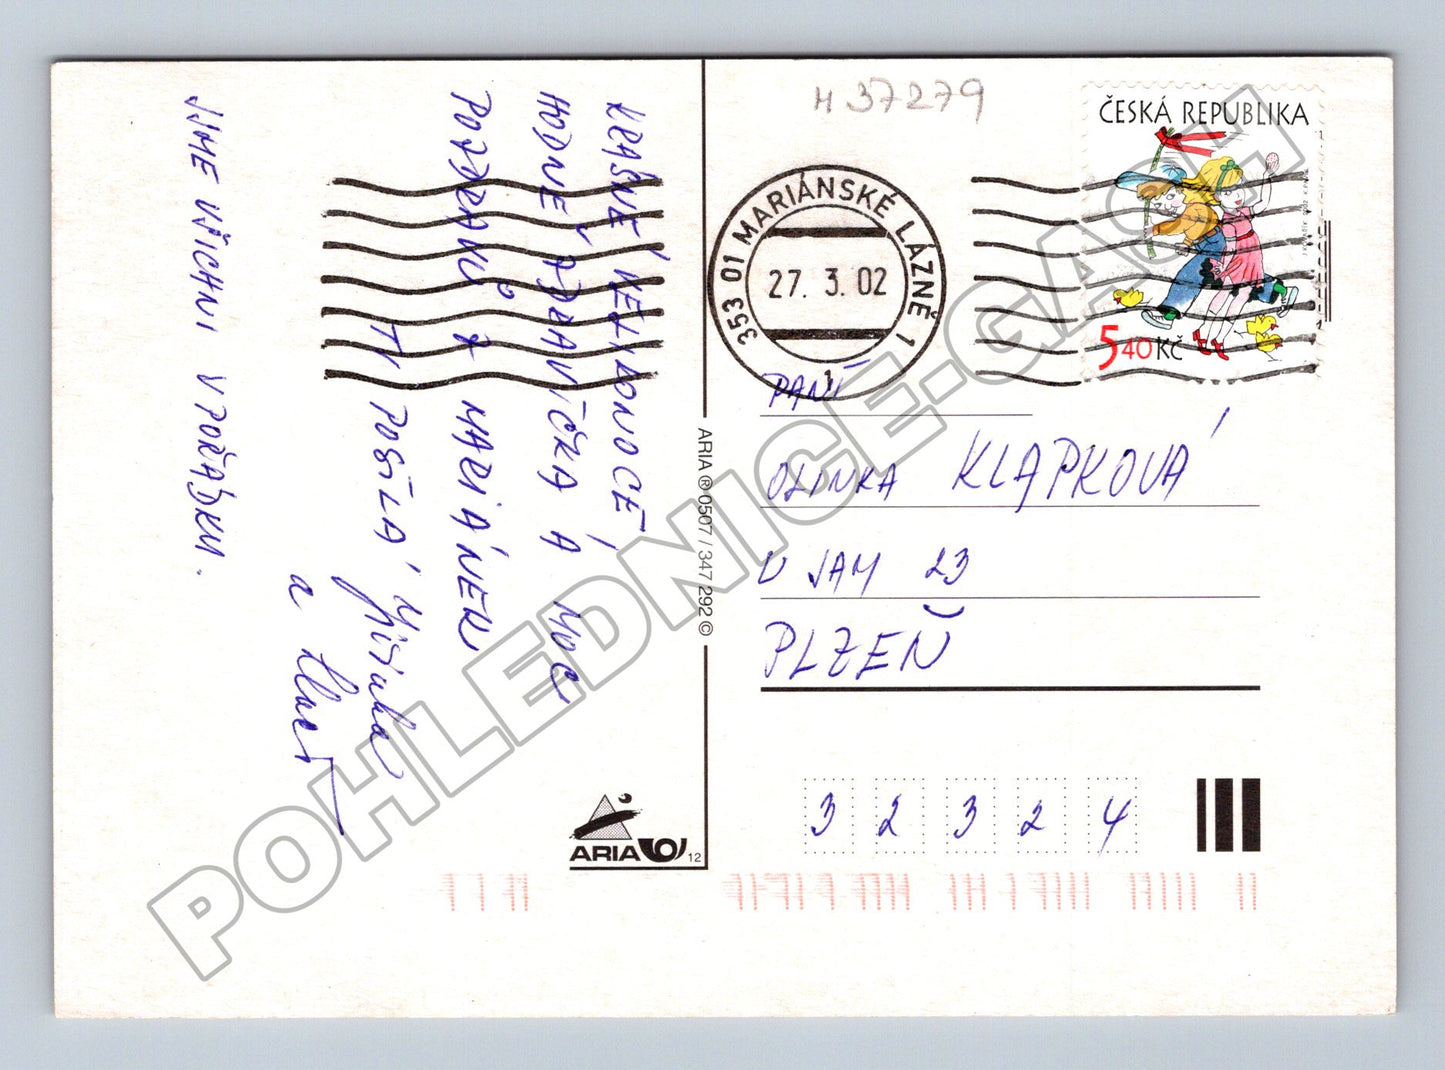 H 37279
ČESKÁ REPUBLIKA
5,40 Kč
353 01 MARIÁNSKÉ LÁZNĚ 1
27. 3. 02
1
KRÁSNÉ VELIKONOCE,
HODNĚ ZDRAVÍČKA A MOC
POZDRAVŮ Z MARIÁNEK
TI POSÍLÁ
a
JSME VŠICHNI V POŘÁDKU.
PANÍ
OLINKA KLAPKOVÁ
U JAM 23
PLZEŇ
3 2 3 2 4
ARIA ® 0507 / 347 292 ©
ARIA
12
POHLEDNICE-CASH